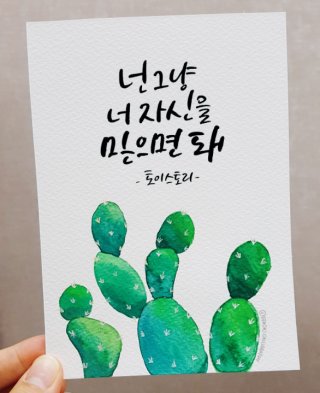 넌 그냥
너 자신을
믿으면 돼
- 토이스토리 -